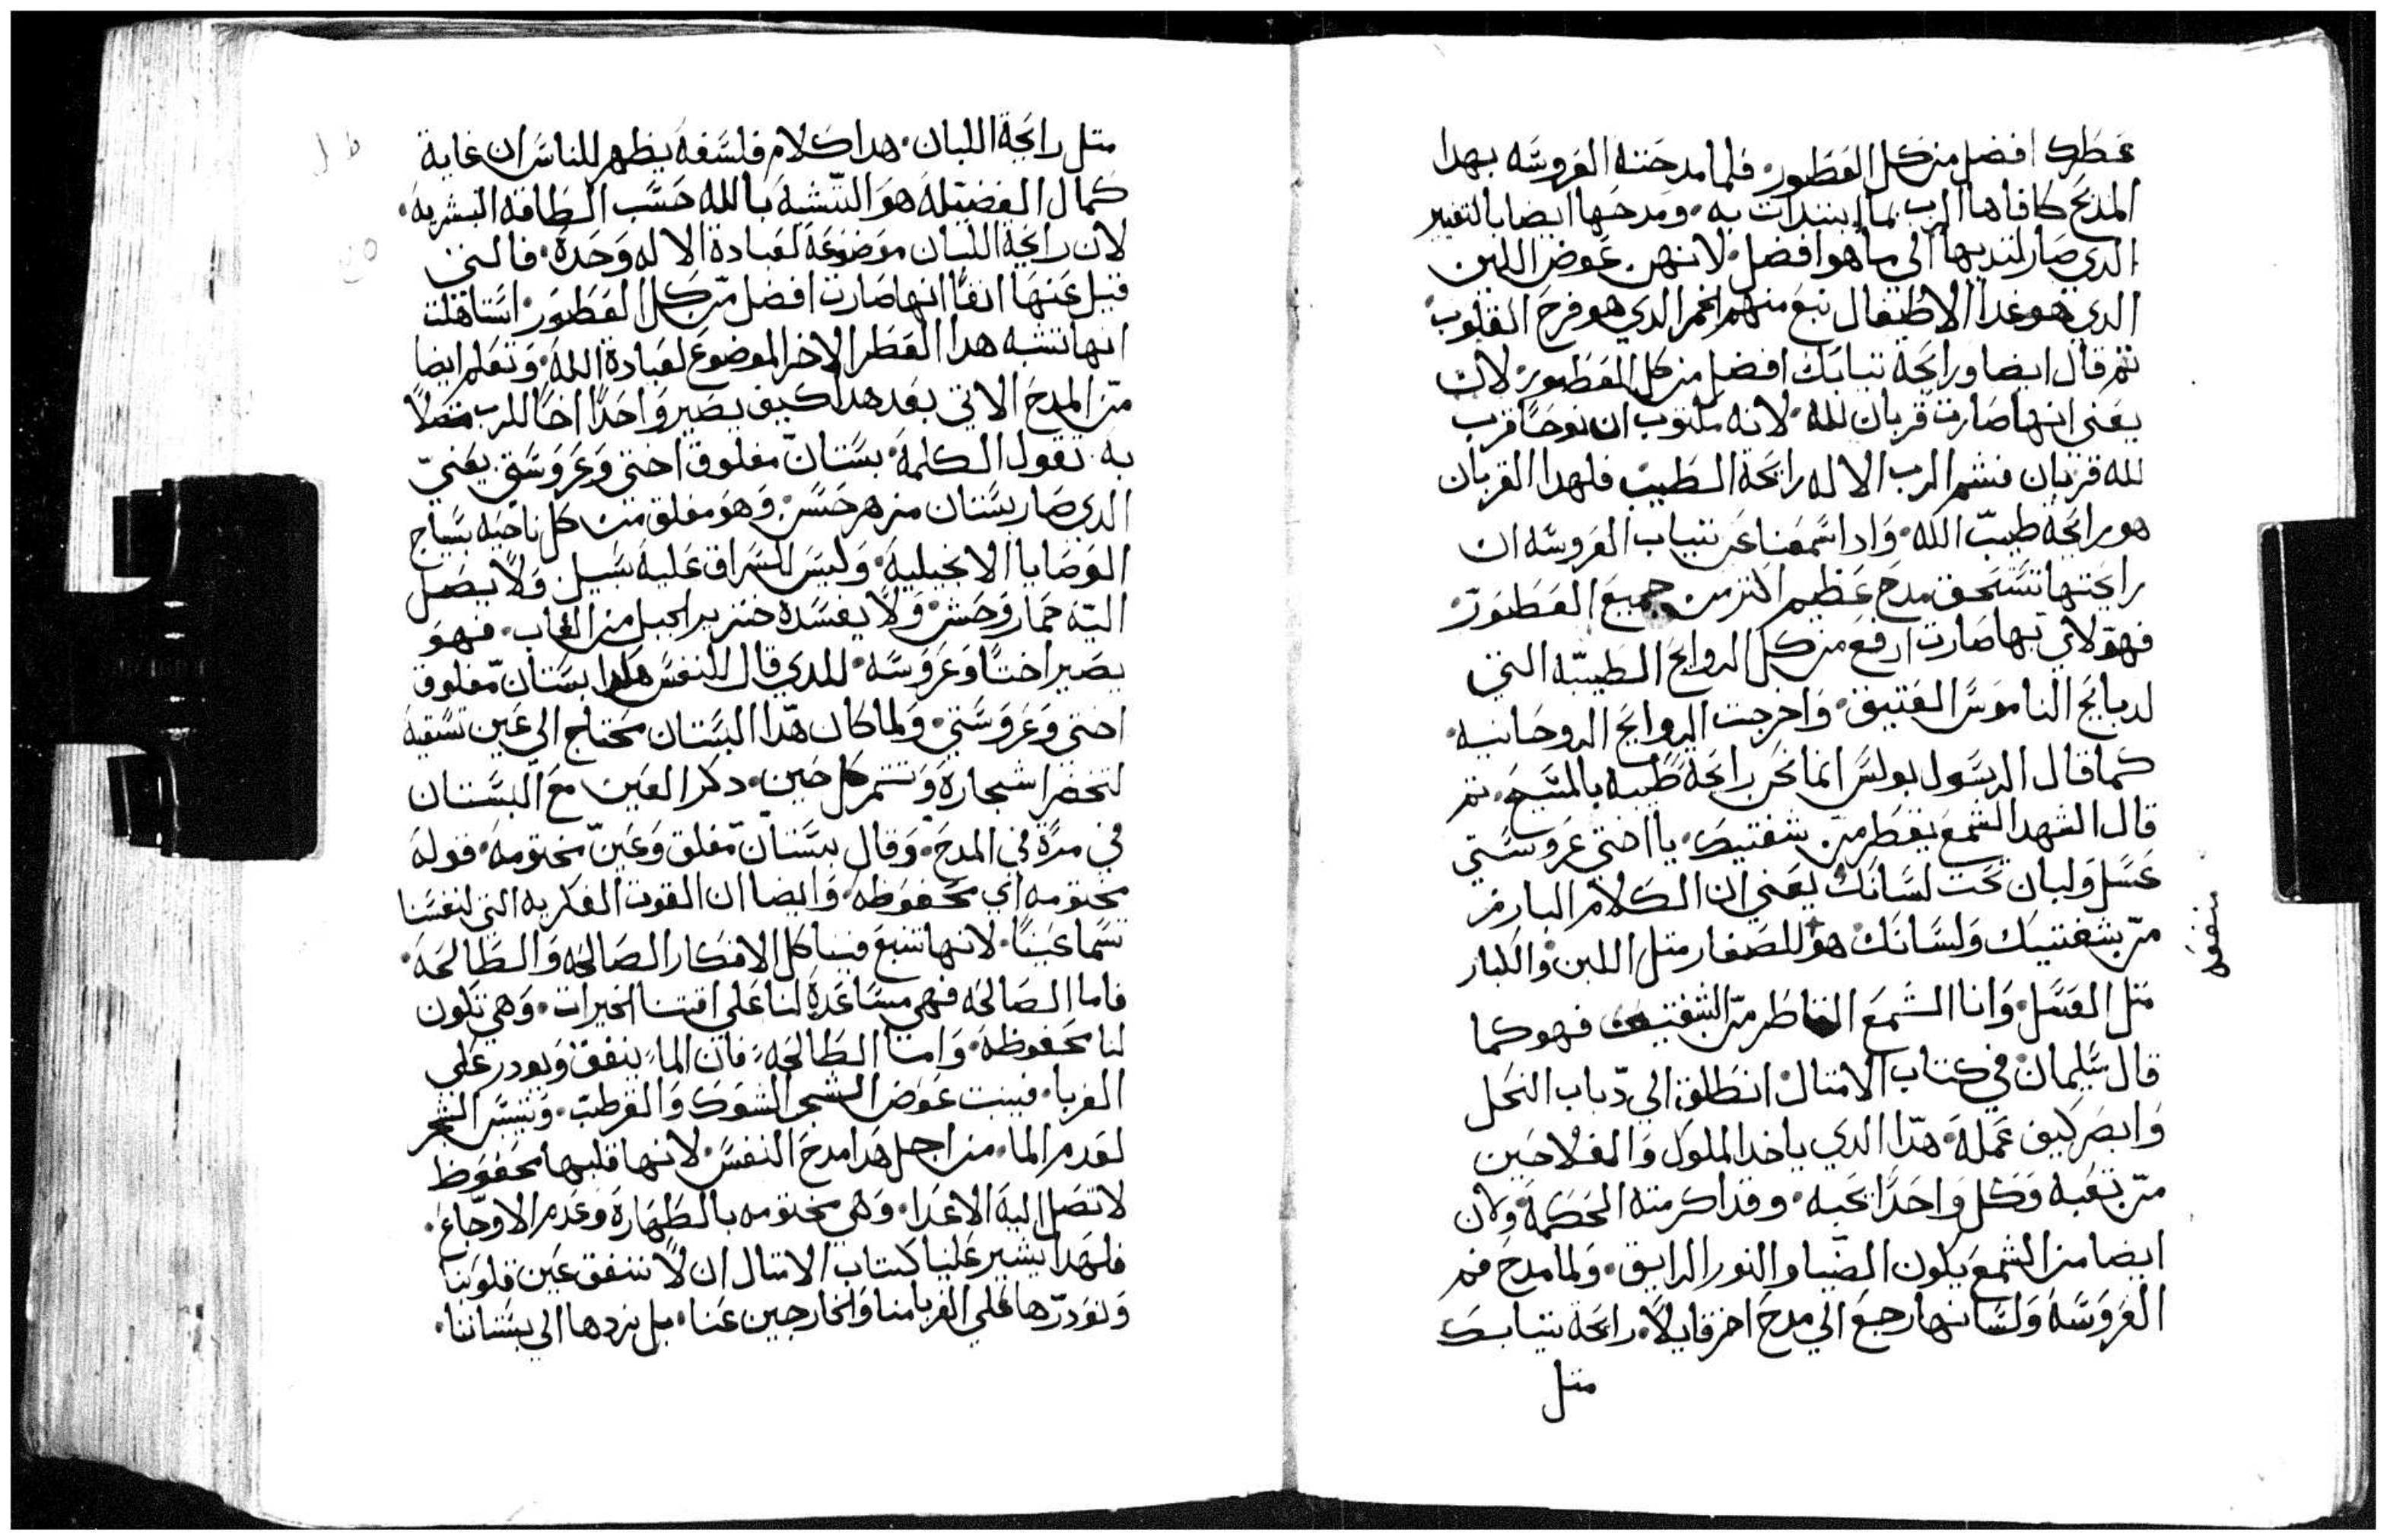 عطرك افضل من كل العطور. فلما مدحته العروسه بهدا
المديح كافاها الرب بما ابتدات به. ومدحها ايضا بالتغيير
الدي صار لتدييها الي ما هو افضل. لانهن عوض اللبن
الدي هو غدا الاطفال نبع منهم الخمر الدي هو فرح القلوب
تم قال ايضا ورايحة تيابك افضل من كل العطور. لان
يعني انها صارت قربان لله. لانه مكتوب ان نوحا قرب
لله قربان فشم الرب الاله رايحة الطيب فلهدا القربان
هو رايحة طيب الله. وادا سمعنا عن تياب العروسه ان
رايحتها تستحق مدح عظيم اكتر من جميع العطور.
فهو لاي بها صارت ارفع من كل الروايح الطيبه التي
لدبايح الناموس العتيق. واخرجت الروايح الروحانيه.
كما قال الرسول بولس انما نحن رايحة طيبه بالمسيح. تم
قال الشهد الشمع يقطر من شفتيك. يا اختي عروستي
عسل ولبان تحت لسانك يعني ان الكلام البارز
من شفتيك ولسانك هو للصغار متل اللبن والكبار
متل العسل. وانا الشمع القاطر من الشفتين فهو كما
قال سليمان في كتاب الامتال انطلق الي دباب النحل
وابصر كيف عمله. هدا الدي ياخد الملوك والفلاحين
من تعبه وكل واحدا يحبه. وقد اكرمته الحكمة ولان
ايضا من الشمع يكون الضيا والنور الرايق. ولما مدح فم
العروسه ولسانها رجع الي مدح اخر قايلا. رايحة تيابك
متل
متل رايحة اللبان. هدا كلام فلسفه يظهر للناس ان غاية
كمال الفضيله هو التشبه بالله حسب الطاقه البشريه.
لان رايحة اللبان موضوعة لعبادة الاله وحده. فالتي
قيل عنها انفا انها صارت افضل من كل العطور. استاهلت
انها تشبه هدا العطر الاخر الموضوع لعبادة الله. وتعلم ايضا
من المدح الاتي بعد هدا كيف يصير واحدا اخا للرب متصلا
به. تقول الكلمة. بستان مغلوق اختي وعروستي يعني
الدي صار بستان مزهر حسن. وهو مغلق من كل ناحيه بسياج
الوصايا الانجيلية. وليس للسراق عليه سبيل ولا يصل
اليه حمار وحش. ولا يفسده خنزير الجبل من الغاب. فهو
يصير اختا وعروسه. للدي قال للنفس هدا بستان مغلوق
اختي وعروستي. ولما كان هدا البستان محتاج الي عين تسقيه
لتخضر اشجاره وتتمر كل حين. دكر العين مع البستان
في مرة في المدح. وقال بستان مغلق وعين مختومه. قوله
مختومه اي محفوظه. وايضا ان القوت الفكريه التي لنفسنا
تسما عينا. لانها تنبع فينا كل الافكار الصالحه والطالحه.
فاما الصالحه فهي مساعدة لنا علي اقتنا الخيرات. وهي تكون
لنا محفوظه. واما الطالحه. فان الما ينفق ويودر علي
الغربا. فينبت عوض الشجر الشوك والقرطب. وتيبس الشجر
لعدم الما. من اجل هدا مدح النفس. لانها قلبها محفوظ
لا تصل اليه الاعدا. وهي مختومه بالطهارة وعدم الاوجاع.
فلهدا يشير علينا كتاب الامتال ان لا ننفق عين قلوبنا
ونودرها علي الغربا منا والخارجين عنا. بل نردها الي بستاننا.